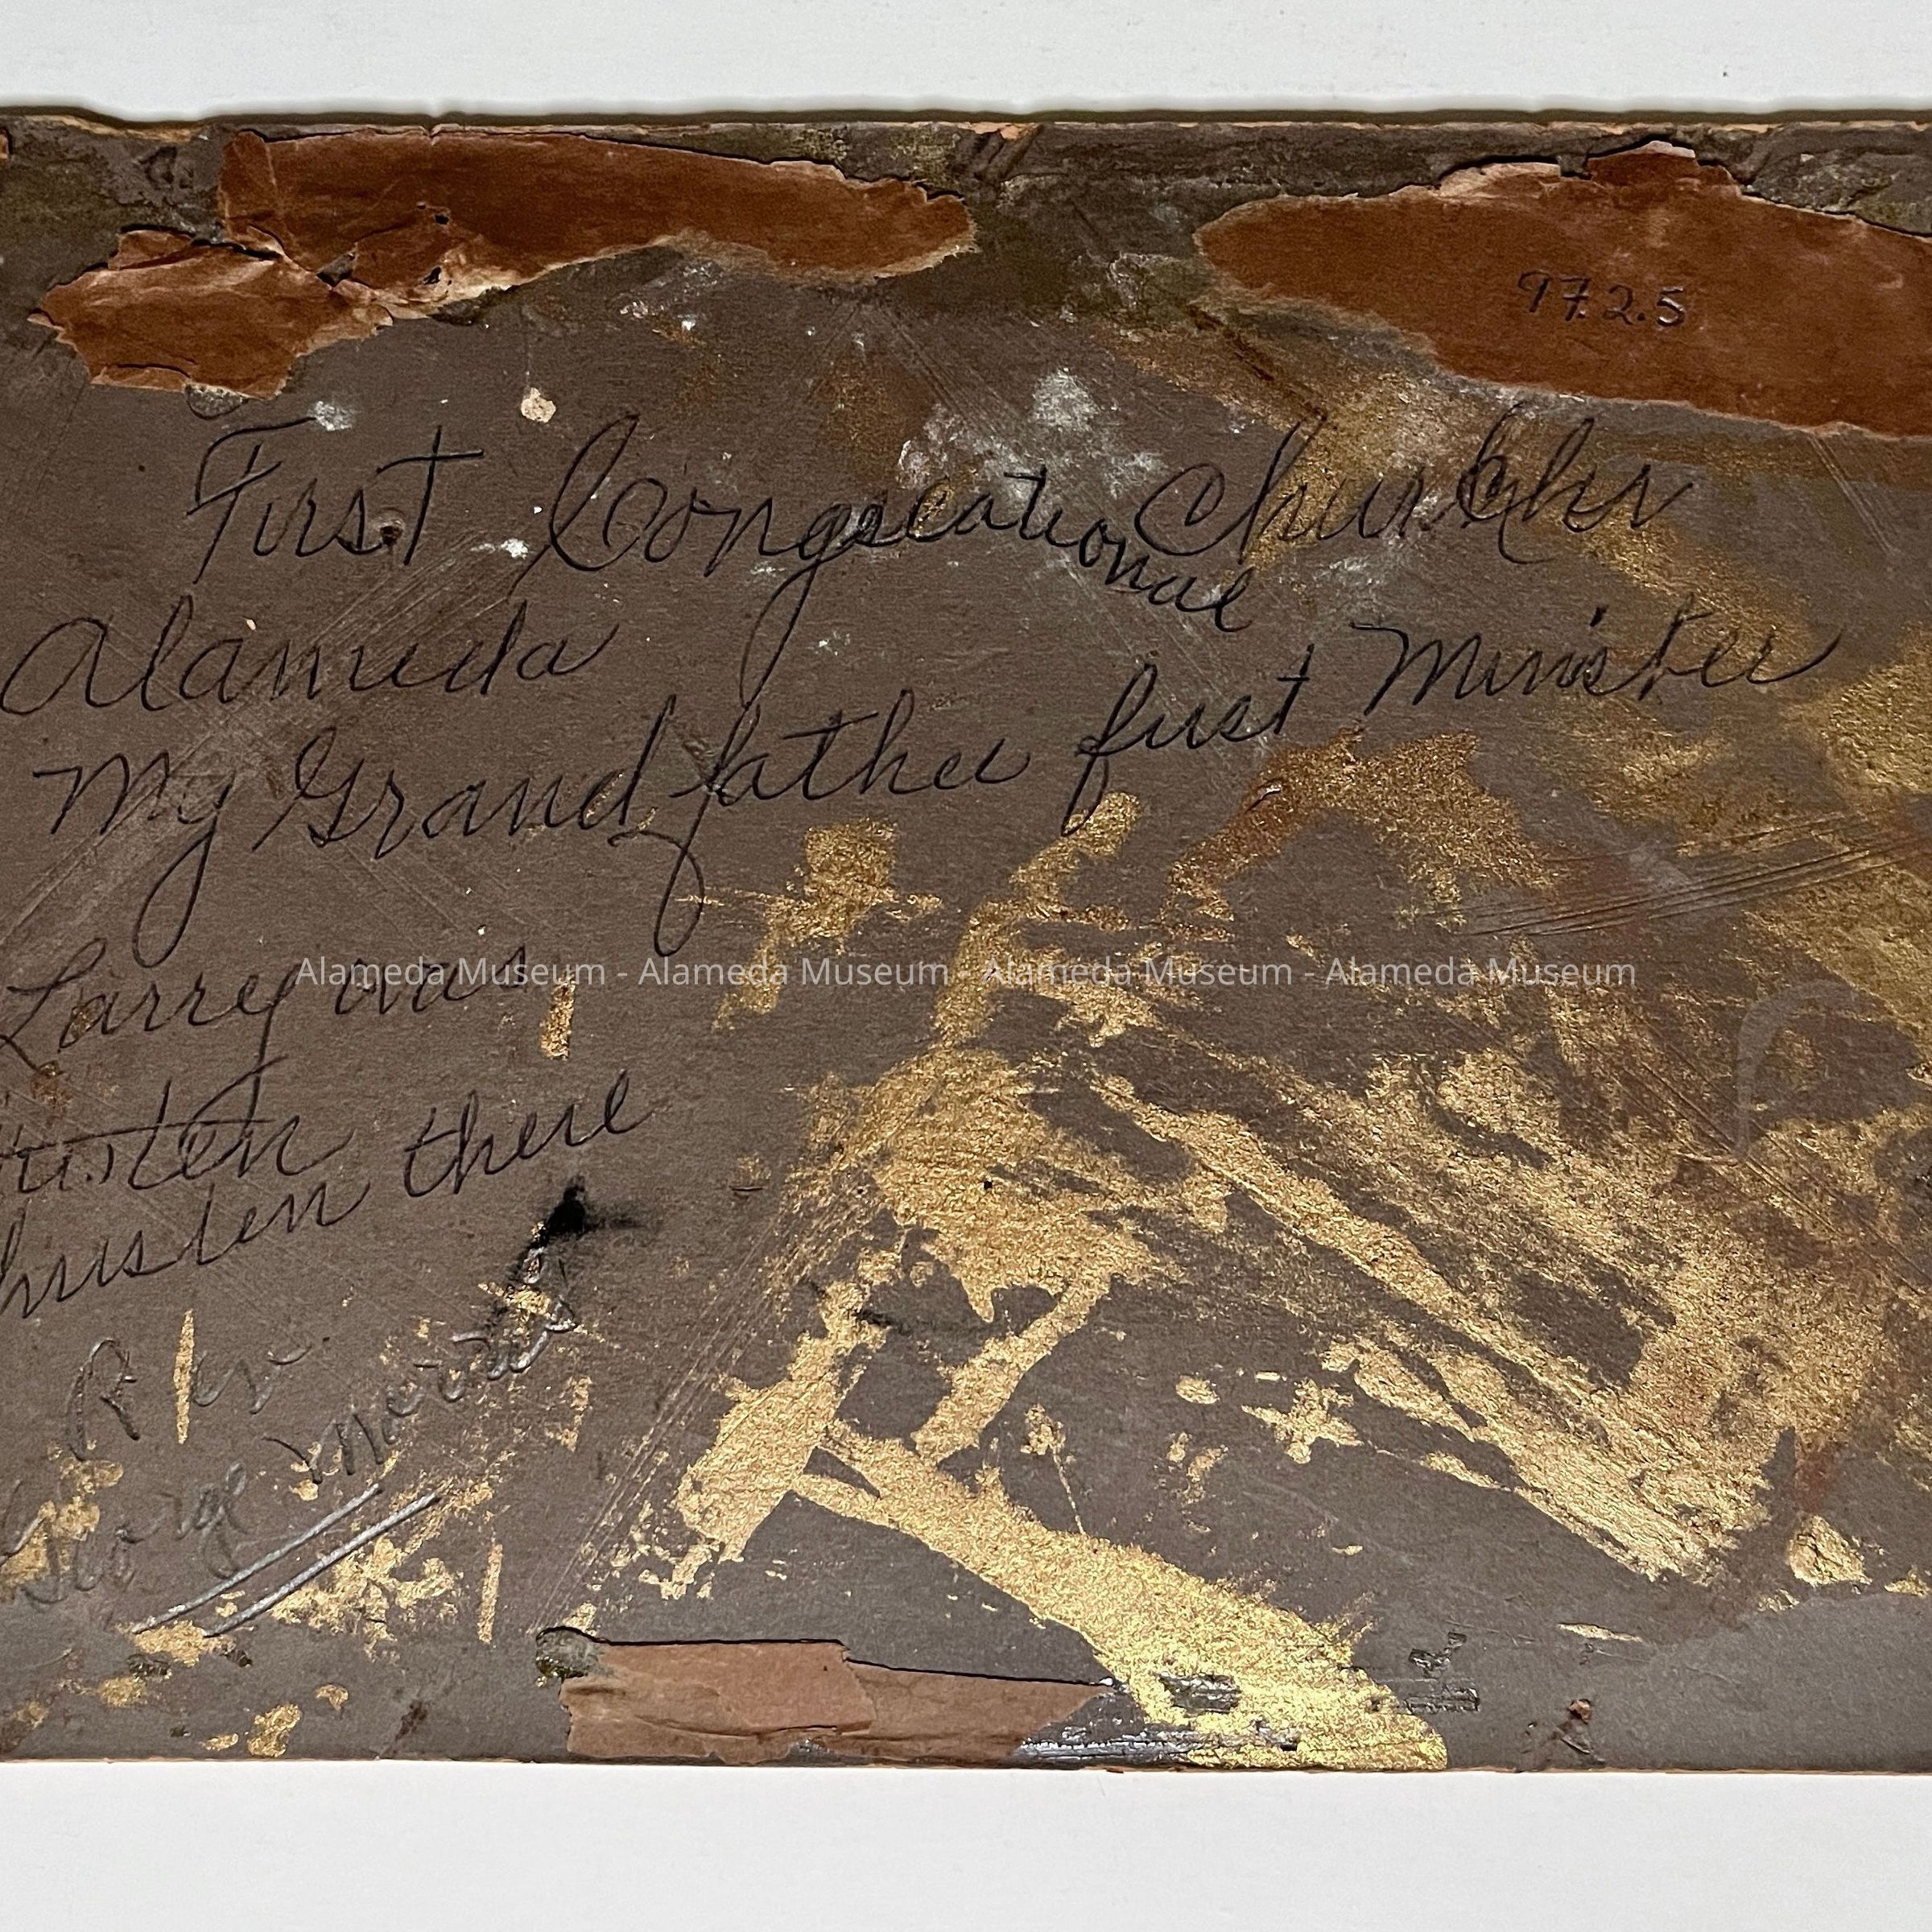 97.2.5
First Congregational Church
Alameda
My Grandfather first Minister
Larry was
there
Rev
George Morris
Alameda Museum - Alameda Museum - Alameda Museum - Alameda Museum